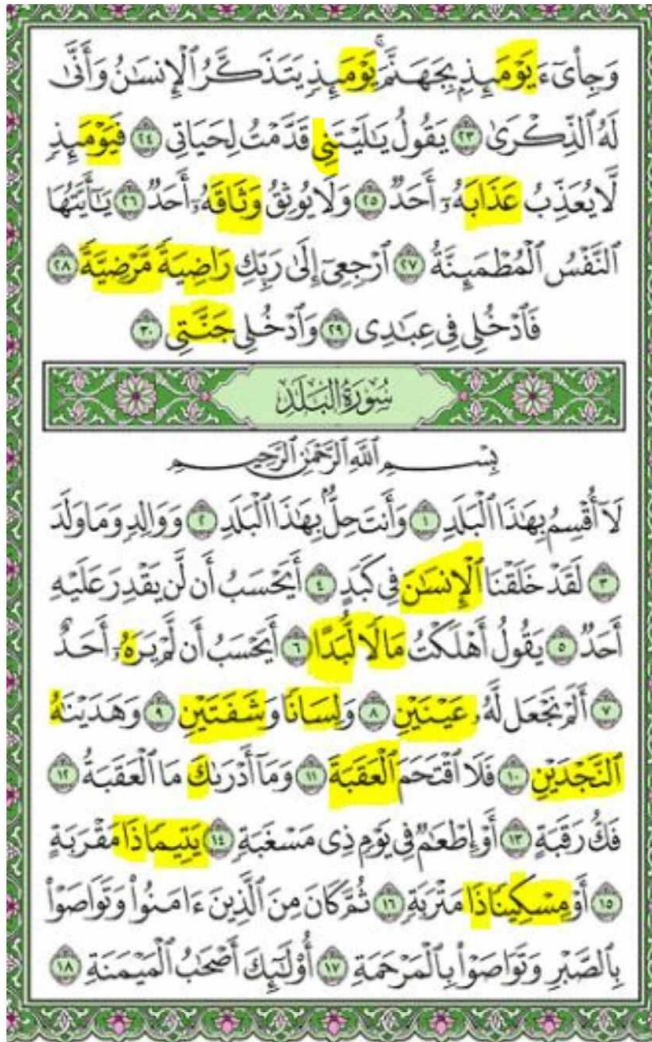 وَجِاْىٓءَ يَوْمَئِذٍۭ بِجَهَنَّمَ ۚ يَوْمَئِذٍ يَتَذَكَّرُ ٱلْإِنسَٰنُ وَأَنَّىٰ
لَهُ ٱلذِّكْرَىٰ ٢٣ يَقُولُ يَٰلَيْتَنِى قَدَّمْتُ لِحَيَاتِى ٢٤ فَيَوْمَئِذٍ
لَّا يُعَذِّبُ عَذَابَهُۥٓ أَحَدٌ ٢٥ وَلَا يُوثِقُ وَثَاقَهُۥٓ أَحَدٌ ٢٦ يَٰٓأَيَّتُهَا
ٱلنَّفْسُ ٱلْمُطْمَئِنَّةُ ٢٧ ٱرْجِعِىٓ إِلَىٰ رَبِّكِ رَاضِيَةً مَّرْضِيَّةً ٢٨
فَٱدْخُلِى فِى عِبَٰدِى ٢٩ وَٱدْخُلِى جَنَّتِى ٣٠
سُورَةُ البَلَدِ
بِسْمِ ٱللَّهِ ٱلرَّحْمَٰنِ ٱلرَّحِيمِ
لَآ أُقْسِمُ بِهَٰذَا ٱلْبَلَدِ ١ وَأَنتَ حِلٌّۢ بِهَٰذَا ٱلْبَلَدِ ٢ وَوَالِدٍ وَمَا وَلَدَ
٣ لَقَدْ خَلَقْنَا ٱلْإِنسَٰنَ فِى كَبَدٍ ٤ أَيَحْسَبُ أَن لَّن يَقْدِرَ عَلَيْهِ
أَحَدٌ ٥ يَقُولُ أَهْلَكْتُ مَالًا لُّبَدًا ٦ أَيَحْسَبُ أَن لَّمْ يَرَهُۥٓ أَحَدٌ
٧ أَلَمْ نَجْعَل لَّهُۥ عَيْنَيْنِ ٨ وَلِسَانًا وَشَفَتَيْنِ ٩ وَهَدَيْنَٰهُ
ٱلنَّجْدَيْنِ ١٠ فَلَا ٱقْتَحَمَ ٱلْعَقَبَةَ ١١ وَمَآ أَدْرَىٰكَ مَا ٱلْعَقَبَةُ ١٢
فَكُّ رَقَبَةٍ ١٣ أَوْ إِطْعَٰمٌ فِى يَوْمٍ ذِى مَسْغَبَةٍ ١٤ يَتِيمًا ذَا مَقْرَبَةٍ
١٥ أَوْ مِسْكِينًا ذَا مَتْرَبَةٍ ١٦ ثُمَّ كَانَ مِنَ ٱلَّذِينَ ءَامَنُوا۟ وَتَوَاصَوْا۟
بِٱلصَّبْرِ وَتَوَاصَوْا۟ بِٱلْمَرْحَمَةِ ١٧ أُو۟لَٰٓئِكَ أَصْحَٰبُ ٱلْمَيْمَنَةِ ١٨